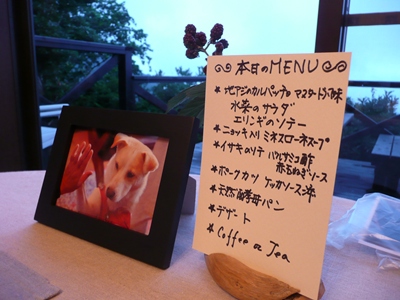 本日のMENU
★地アジのカルパッチョ マスタード風味
水菜のサラダ
エリンギのソテー
★ニョッキ入り ミネストローネスープ
★イサキのソテー バルサミコ酢
赤玉ねぎソース
★ポークカツ ケッカソース添
★天然酵母パン
★デザート
★Coffee or Tea